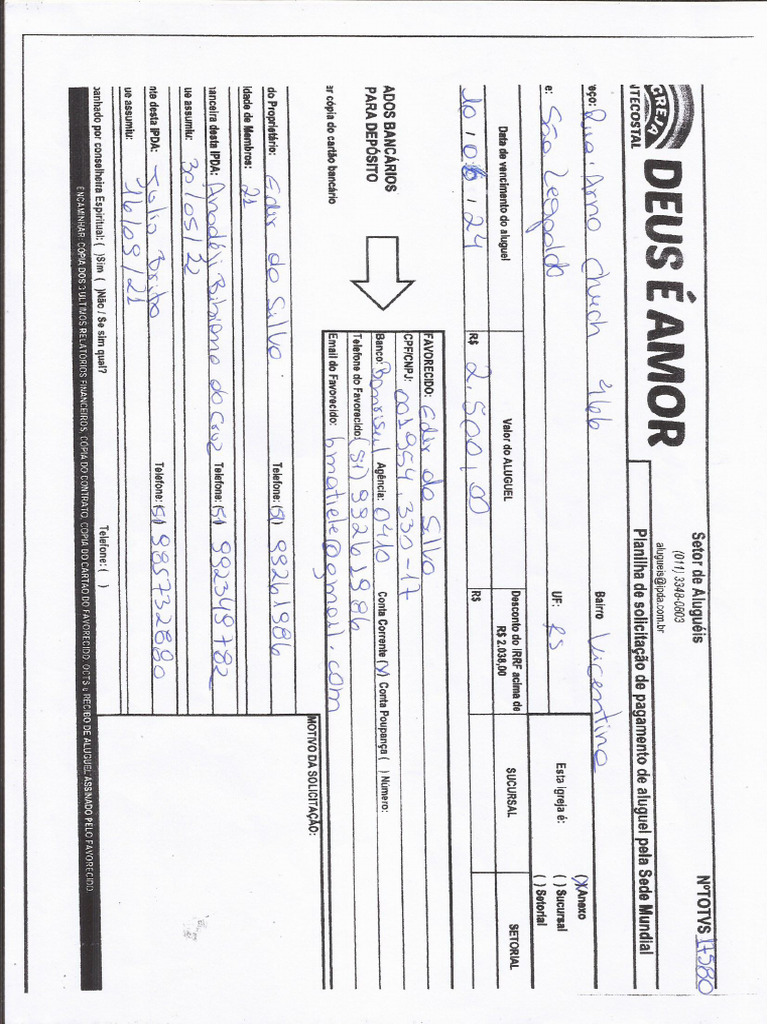 Setor de Aluguéis
(011) 3348-0603
alugueis@ipda.com.br
NºTOTVS 17580
GREJA
NTECOSTAL
DEUS É AMOR
Planilha de solicitação de pagamento de aluguel pela Sede Mundial
eço: Rua: Arno Bairro Vicentina
e: São Leopoldo UF: RS
Esta igreja é: (X)Anexo
( ) Sucursal
( ) Setorial
Data de vencimento do aluguel Valor do ALUGUEL Desconto do IRRF acima de R$ 2.038,00 SUCURSAL SETORIAL
24 R$ 2.500,00 R$
ADOS BANCÁRIOS
PARA DEPÓSITO
ar cópia do cartão bancário
FAVORECIDO: Eder da Silva
CPF/CNPJ: 001954.330-17
Banco: Banrisul Agência: 0410 Conta Corrente (X) Conta Poupança ( ) Número:
Telefone do Favorecido: (51) 99261986
Email do Favorecido: @gmail.com
do Proprietário: Eder da Silva Telefone: (51) 99261986
idade de Membros: 21
MOTIVO DA SOLICITAÇÃO:
nanceira desta IPDA: Bibiana da Cruz Telefone: (51) 992349782
ue assumiu: 30/05/22
nte desta IPDA: Julio Telefone: (51) 985732880
ue assumiu: 16/09/21
panhado por conselheira Espiritual: ( )Sim ( )Não / Se sim qual? Telefone: ( )
ENCAMINHAR: COPIA DOS 3 ULTIMOS RELATORIOS FINANCEIROS, COPIA DO CONTRATO, COPIA DO CARTAO DO FAVORECIDO, OCTS e RECIBO DE ALUGUEL ASSINADO PELO FAVORECIDO.